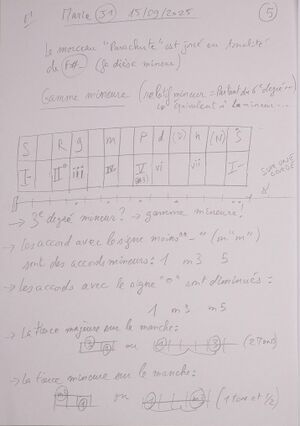 Marle (J1) 15/09/2025 (5)
Le morceau "Parachute" est joué en tonalité
de F#- (fa dièse mineur)
Gamme mineure (relatif mineur = Partant du 6° degré
équivalent à la mineur...
S R g m P d (N) n (N) S
I- II° iii IV- V vi vii I-
SUR UNE CORDE
→ 3e degré mineur? → gamme mineure!
→ Les accords avec le signe moins "-" ("m" "m")
sont des accords mineurs: 1 m3 5
→ Les accords avec le signe "°" sont diminués:
1 m3 m5
→ La tierce majeure sur le manche:
ou (2 tons)
→ La tierce mineure sur le manche:
ou (1 ton et 1/2)